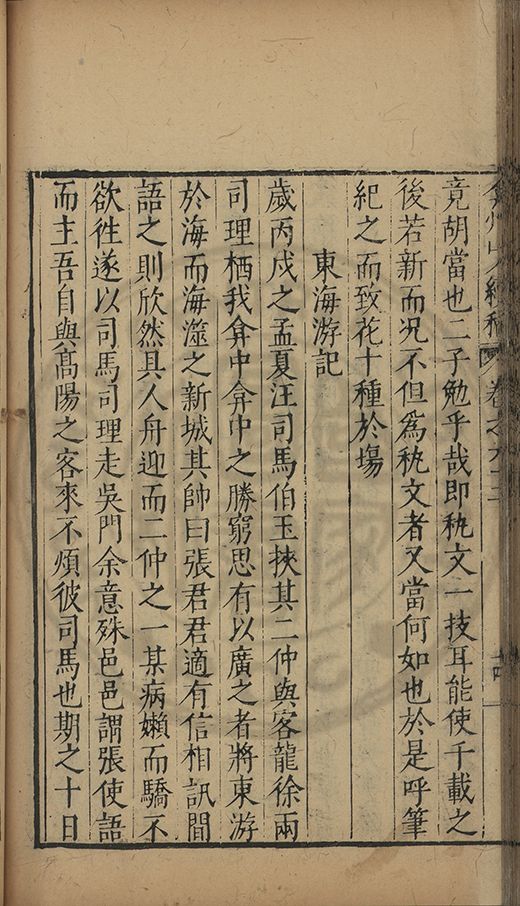 弇州山人續稿 卷之六十三 十四
竟胡當也二子勉乎哉即秇文一技耳能使千載之
後若新而况不但為秇文者又當何如也於是呼筆
紀之而致花十種於塲
東海游記
歲丙戌之孟夏汪司馬伯玉挾其二仲與客龍徐兩
司理栖我弇中弇中之勝窮思有以廣之者將東游
於海而海澨之新城其帥曰張君君適有信相訊間
語之則欣然具人舟迎而二仲之一某病嬾而驕不
欲徃遂以司馬司理走吳門余意殊邑邑謂張使語
而主吾自與髙陽之客來不煩彼司馬也期之十日